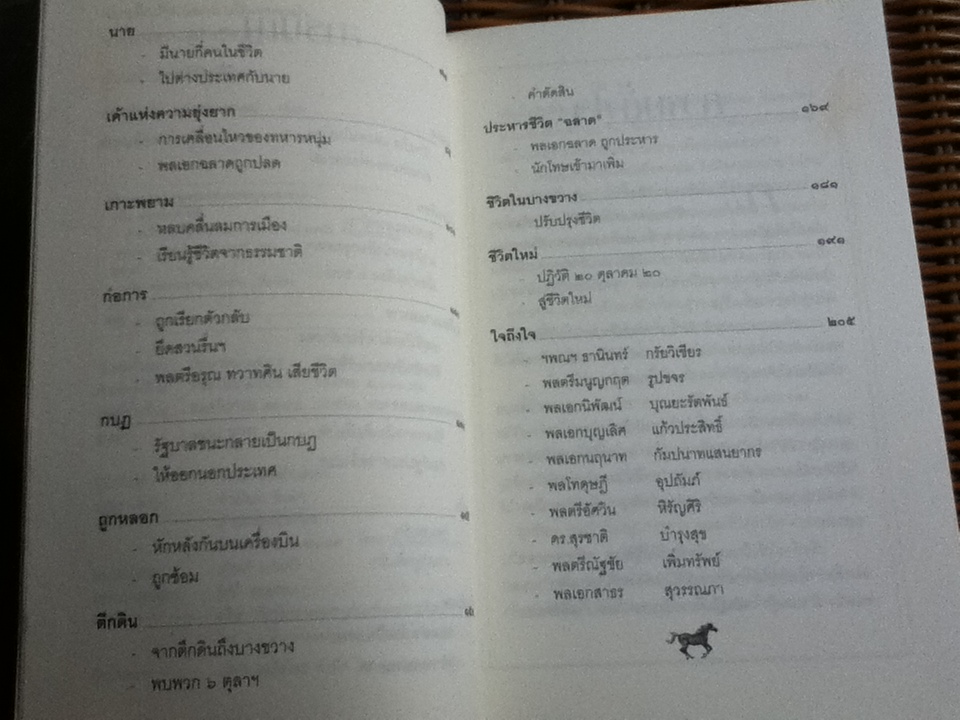 นาย
- มีนายกี่คนในชีวิต
- ไปต่างประเทศกับนาย
เค้าแห่งความยุ่งยาก
- การเคลื่อนไหวของทหารหนุ่ม
- พลเอกฉลาดถูกปลด
เกาะพยาม
- หลบคลื่นลมการเมือง
- เรียนรู้ชีวิตจากธรรมชาติ
ก่อการ
- ถูกเรียกตัวกลับ
- ยึดสวนรื่นฯ
- พลตรีอรุณ ทวาทศิน เสียชีวิต
กบฏ
- รัฐบาลชนะกลายเป็นกบฏ
- ให้ออกนอกประเทศ
ถูกหลอก
- หักหลังกันบนเครื่องบิน
- ถูกซ้อม
ตึกดิน
- จากตึกดินถึงบางขวาง
- พบพวก ๖ ตุลาฯ
- คำตัดสิน
ประหารชีวิต "ฉลาด" ๑๖๙
- พลเอกฉลาด ถูกประหาร
- นักโทษเข้ามาเพิ่ม
ชีวิตในบางขวาง ๑๘๑
- ปรับปรุงชีวิต
ชีวิตใหม่ ๑๙๑
- ปฏิวัติ ๒๐ ตุลาคม ๒๐
- สู่ชีวิตใหม่
ใจถึงใจ ๒๐๕
- ฯพณฯ ธานินทร์ กรัยวิเชียร
- พลตรีมนูญกฤต รูปขจร
- พลเอกนิพัฒน์ บุณยะรัตพันธ์
- พลเอกบุญเลิศ แก้วประสิทธิ์
- พลเอกนฤนาท กัมปนาทแสนยากร
- พลโทดุษฎี อุปถัมภ์
- พลตรีอัศวิน หิรัญศิริ
- ดร.สุรชาติ บำรุงสุข
- พลตรีณัฐชัย เพิ่มทรัพย์
- พลเอกสาธร สุวรรณภา